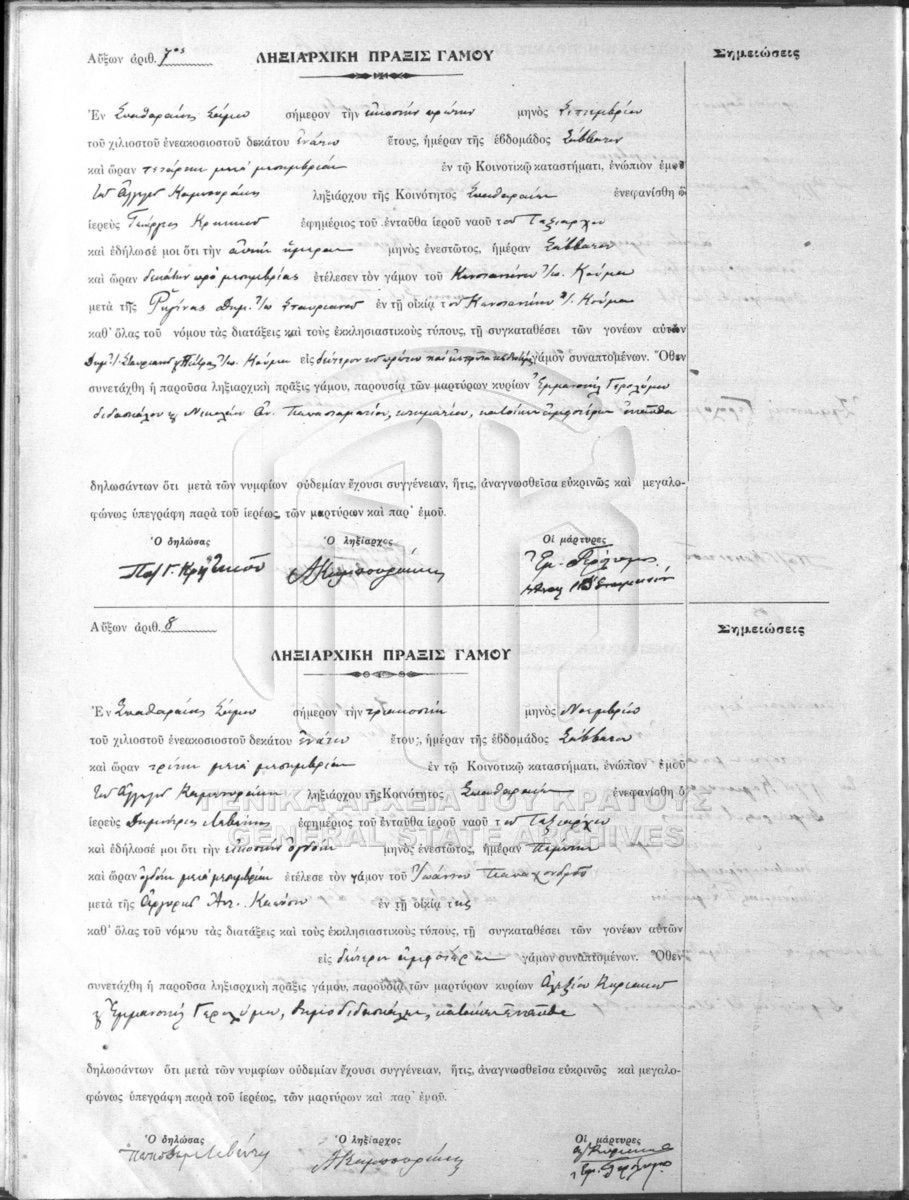 Αὔξων ἀριθ. 7ος
ΛΗΞΙΑΡΧΙΚΗ ΠΡΑΞΙΣ ΓΑΜΟΥ
Σημειώσεις
Ἐν Σπαθαραίοις Σάμου σήμερον τὴν εἰκοστὴν πρώτην μηνὸς Σεπτεμβρίου
τοῦ χιλιοστοῦ ἐνεακοσιοστοῦ δεκάτου ἐνάτου ἔτους, ἡμέραν τῆς ἑβδομάδος Σάββατον
καὶ ὥραν τετάρτην μετὰ μεσημβρίαν ἐν τῷ Κοινοτικῷ καταστήματι, ἐνώπιον ἐμοῦ
ληξιάρχου τῆς Κοινότητος Σπαθαραίων ἐνεφανίσθη ὁ
ἱερεὺς Γεώργιος ἐφημέριος τοῦ ἐνταῦθα ἱεροῦ ναοῦ τοῦ Ταξιάρχου
καὶ ἐδήλωσέ μοι ὅτι τὴν αὐτὴν ἡμέραν μηνὸς ἐνεστῶτος, ἡμέραν Σάββατον
καὶ ὥραν δεκάτην πρὸ μεσημβρίας ἐτέλεσεν τὸν γάμον τοῦ Κωνσταντίνου Κούμα
μετὰ τῆς Ρηγίνας Δημ. Σταυριανοῦ ἐν τῇ οἰκίᾳ τοῦ Κωνσταντίνου Κούμα
καθ' ὅλας τοῦ νόμου τὰς διατάξεις καὶ τοὺς ἐκκλησιαστικοὺς τύπους, τῇ συγκαταθέσει τῶν γονέων αὐτῶν
εἰς δεύτερον γάμον συναπτομένων. Ὅθεν
συνετάχθη ἡ παροῦσα ληξιαρχικὴ πρᾶξις γάμου, παρουσίᾳ τῶν μαρτύρων κυρίων Ἐμμανουὴλ Γερολύμου
διδασκάλου κατοίκων ἀμφοτέρων ἐνταῦθα
δηλωσάντων ὅτι μετὰ τῶν νυμφίων οὐδεμίαν ἔχουσι συγγένειαν, ἥτις, ἀναγνωσθεῖσα εὐκρινῶς καὶ μεγαλο-
φώνως ὑπεγράφη παρὰ τοῦ ἱερέως, τῶν μαρτύρων καὶ παρ' ἐμοῦ.
Ὁ δηλώσας Ὁ ληξίαρχος Οἱ μάρτυρες
Αὔξων ἀριθ. 8
Σημειώσεις
ΛΗΞΙΑΡΧΙΚΗ ΠΡΑΞΙΣ ΓΑΜΟΥ
Ἐν Σπαθαραίοις Σάμου σήμερον τὴν τριακοστὴν μηνὸς Νοεμβρίου
τοῦ χιλιοστοῦ ἐνεακοσιοστοῦ δεκάτου ἐνάτου ἔτους, ἡμέραν τῆς ἑβδομάδος Σάββατον
καὶ ὥραν τρίτην μετὰ μεσημβρίαν ἐν τῷ Κοινοτικῷ καταστήματι, ἐνώπιον ἐμοῦ
ληξιάρχου τῆς Κοινότητος Σπαθαραίων ἐνεφανίσθη ὁ
ΓΕΝΙΚΑ ΑΡΧΕΙΑ ΤΟΥ ΚΡΑΤΟΥΣ
ἱερεὺς Δημήτριος ἐφημέριος τοῦ ἐνταῦθα ἱεροῦ ναοῦ τοῦ Ταξιάρχου
GENERAL STATE ARCHIVES
καὶ ἐδήλωσέ μοι ὅτι τὴν εἰκοστὴν ὀγδόην μηνὸς ἐνεστῶτος, ἡμέραν Πέμπτην
καὶ ὥραν ὀγδόην μετὰ μεσημβρίαν ἐτέλεσε τὸν γάμον τοῦ Ἰωάννου
μετὰ τῆς Ἀργυρῆς Ἀντ. ἐν τῇ οἰκίᾳ της
καθ' ὅλας τοῦ νόμου τὰς διατάξεις καὶ τοὺς ἐκκλησιαστικοὺς τύπους, τῇ συγκαταθέσει τῶν γονέων αὐτῶν
εἰς δεύτερον γάμον συναπτομένων. Ὅθεν
συνετάχθη ἡ παροῦσα ληξιαρχικὴ πρᾶξις γάμου, παρουσίᾳ τῶν μαρτύρων κυρίων Ἀλεξίου Κυριακοῦ
Ἐμμανουὴλ Γερολύμου, δημοδιδασκάλου, κατοίκων ἐνταῦθα
δηλωσάντων ὅτι μετὰ τῶν νυμφίων οὐδεμίαν ἔχουσι συγγένειαν, ἥτις, ἀναγνωσθεῖσα εὐκρινῶς καὶ μεγαλο-
φώνως ὑπεγράφη παρὰ τοῦ ἱερέως, τῶν μαρτύρων καὶ παρ' ἐμοῦ.
Ὁ δηλώσας Ὁ ληξίαρχος Οἱ μάρτυρες